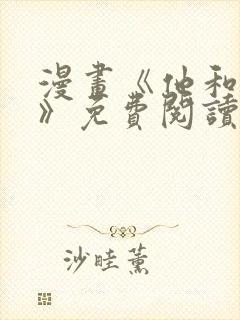 漫畫《他和
》免費閱讀
沙畦薰